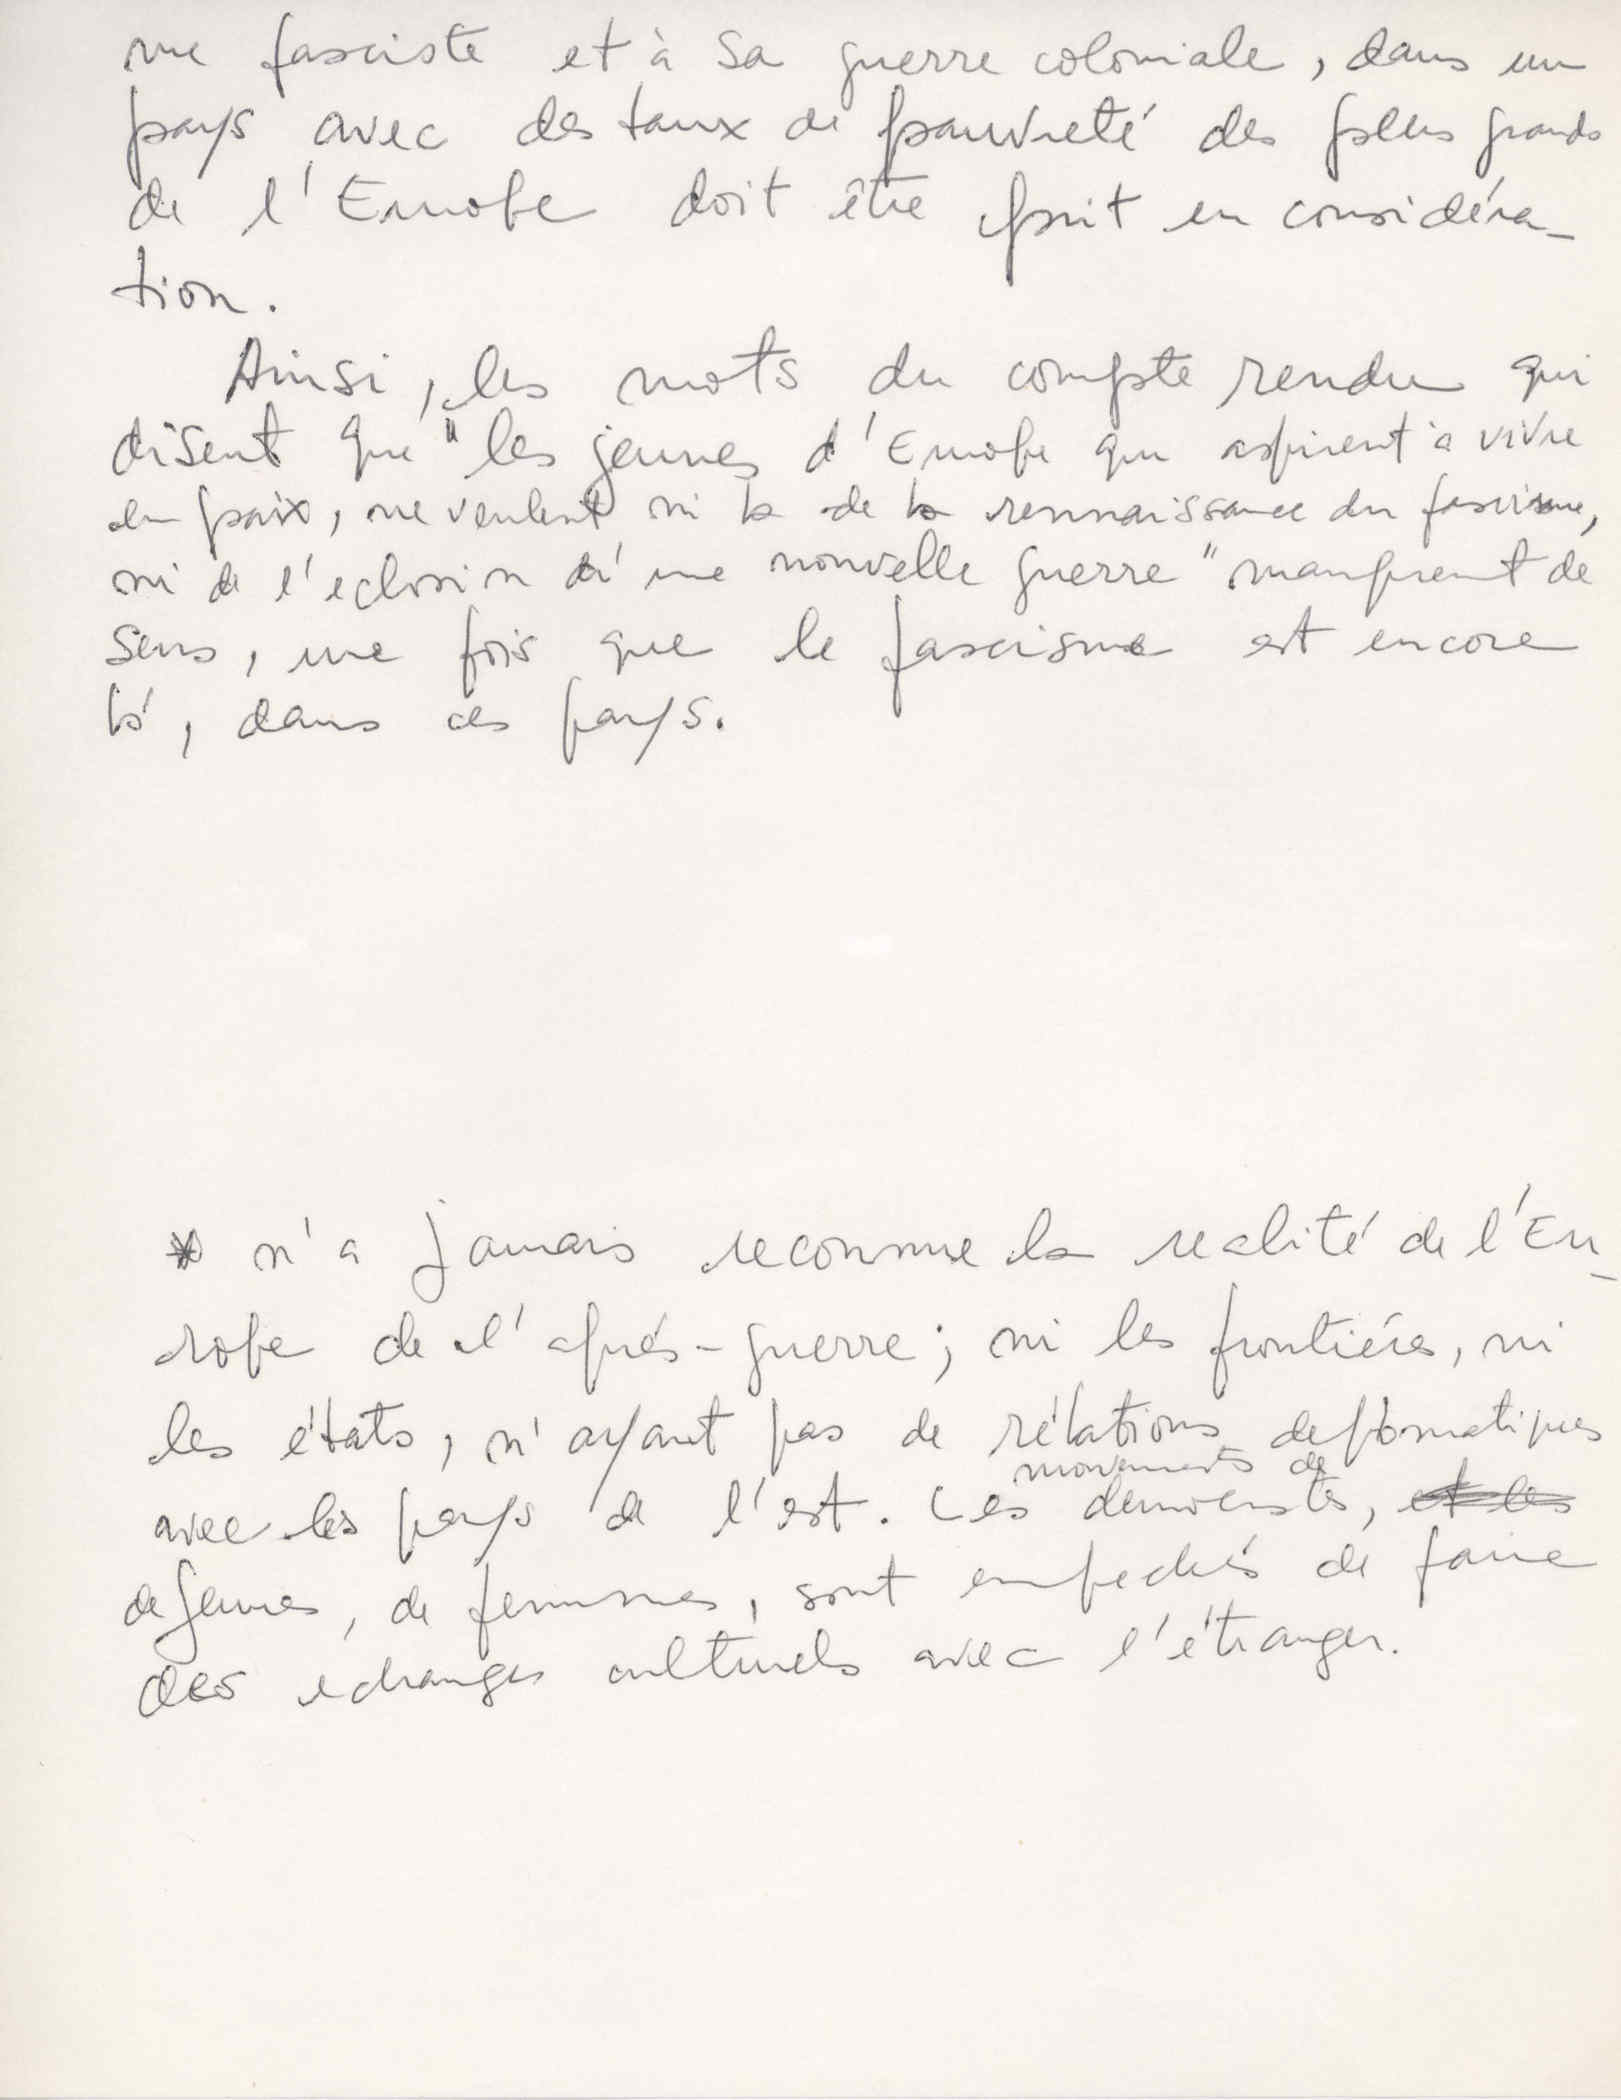 me fasciste et à sa guerre coloniale, dans un
pays avec des taux de pauvreté des plus grands
de l'Europe doit être prit en considéra-
tion.
Ainsi, les mots du compte rendu qui
disent que "les jeunes d'Europe qui aspirent à vivre
en paix, ne veulent ni la de la rennaissance du fascisme,
ni de l'eclosion d'une nouvelle guerre" manquent de
sens, une fois que le fascisme est encore
là, dans ces pays.
* n'a jamais reconnue la realité de l'Eu-
rope de l'aprés-guerre; ni les frontiéres, ni
les états, n'ayant pas de rélations deplomatiques
avec les pays de l'est. Les movements de democrates, et les
de jeunes, de femmes, sont empechés de faire
des echanges culturels avec l'étranger.